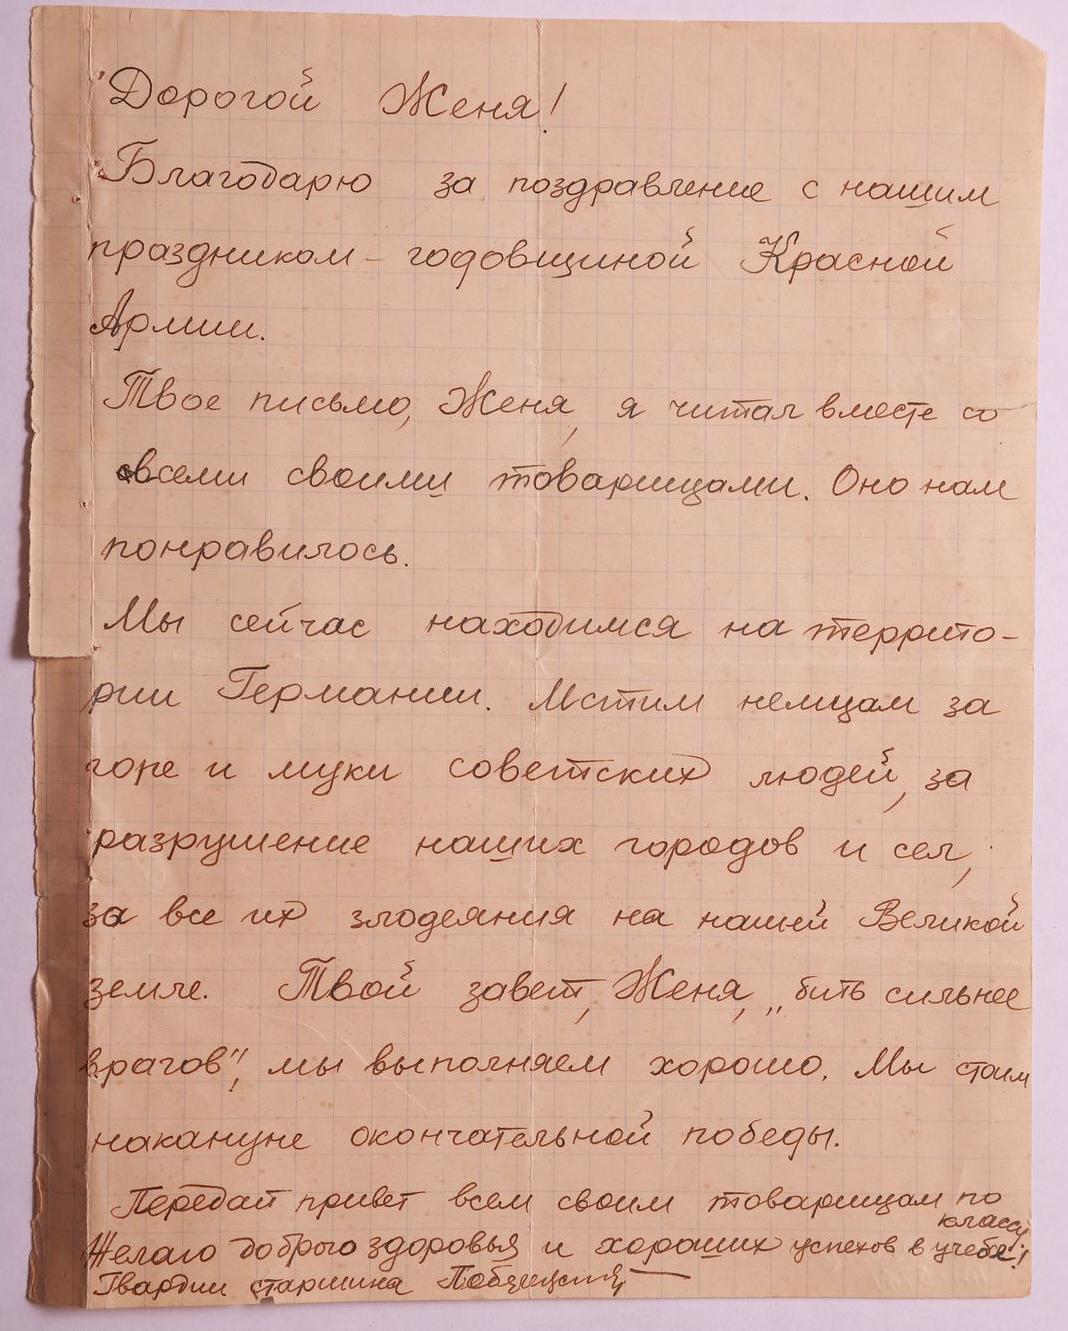 Дорогой Женя!
Благодарю за поздравление с нашим
праздником – годовщиной Красной
Армии.
Твое письмо, Женя, я читал вместе со
всеми своими товарищами. Оно нам
понравилось.
Мы сейчас находимся на террито-
рии Германии. Мстим немцам за
горе и муки советских людей, за
разрушение наших городов и сел,
за все их злодеяния на нашей Великой
земле. Твой завет, Женя, „бить сильнее
врагов", мы выполняем хорошо. Мы стоим
накануне окончательной победы.
Передай привет всем своим товарищам по
классу
Желаю доброго здоровья и хороших успехов в учебе!
Гвардии старшина